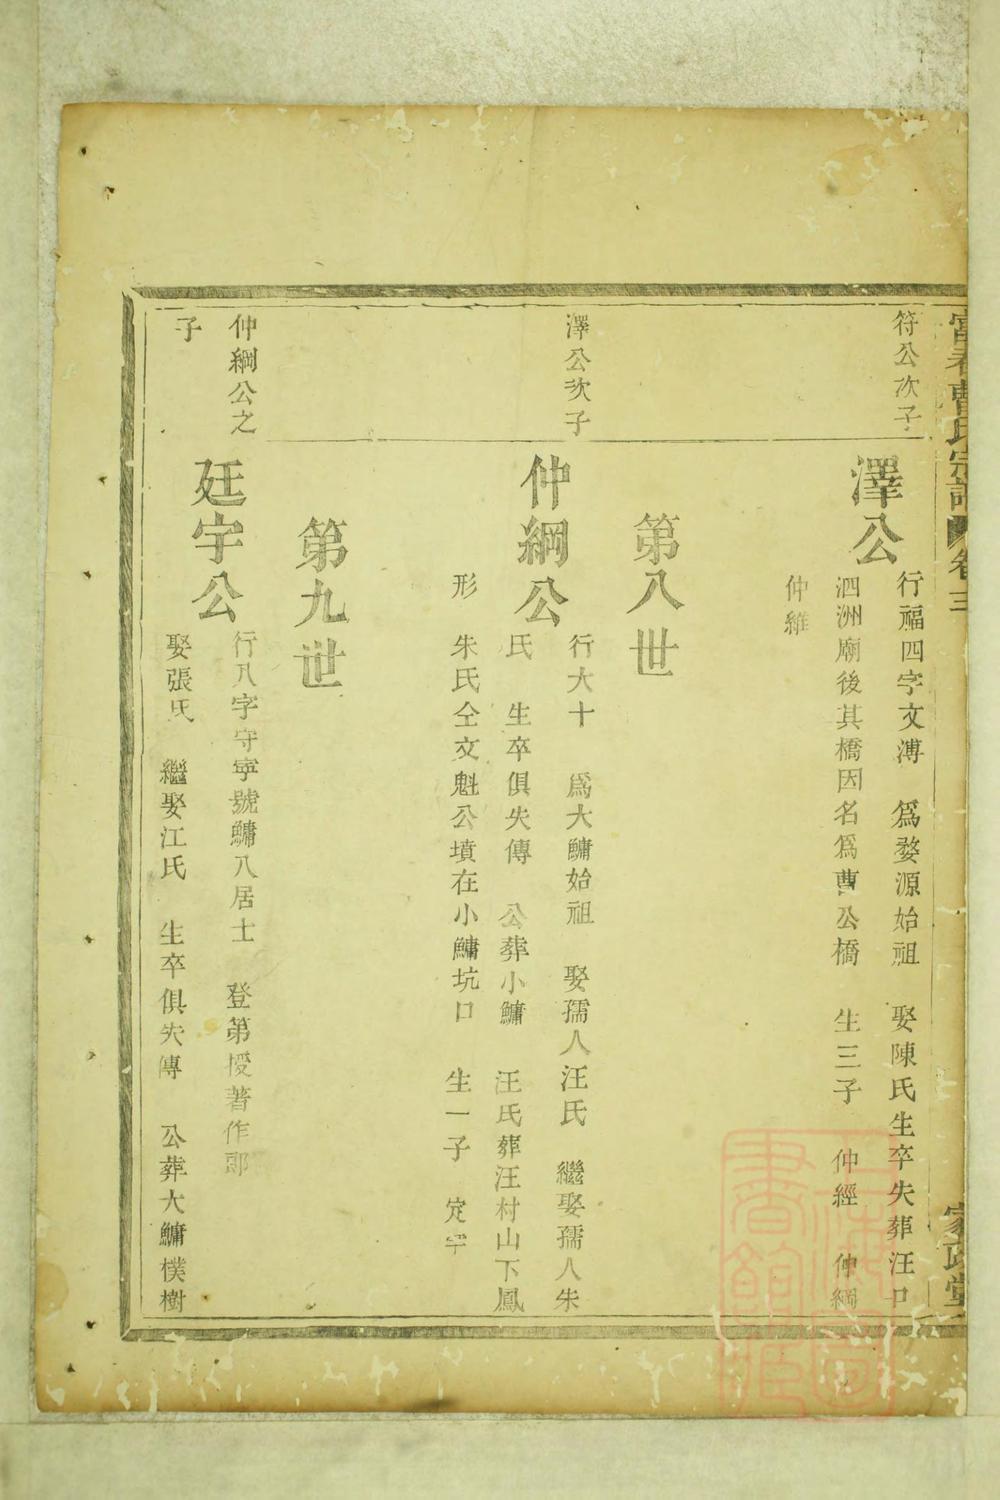 富春曹氏宗譜 卷三
符公次子
澤公
行福四字文溥 爲婺源始祖 娶陳氏生卒失葬汪口
泗洲廟後其橋因名爲曹公橋 生三子 仲經 仲綱
仲維
第八世
澤公次子
仲綱公
行大十 爲大鱅始祖 娶孺人汪氏 繼娶孺人朱
氏 生卒俱失傳 公葬小鱅 汪氏葬汪村山下鳳
形 朱氏仝文魁公墳在小鱅坑口 生一子 定宇
第九世
仲綱公之
子
廷宇公
行八字守寧號鱅八居士 登第授著作郎
娶張氏 繼娶江氏 生卒俱失傳 公葬大鱅樸樹
上海圖書館藏